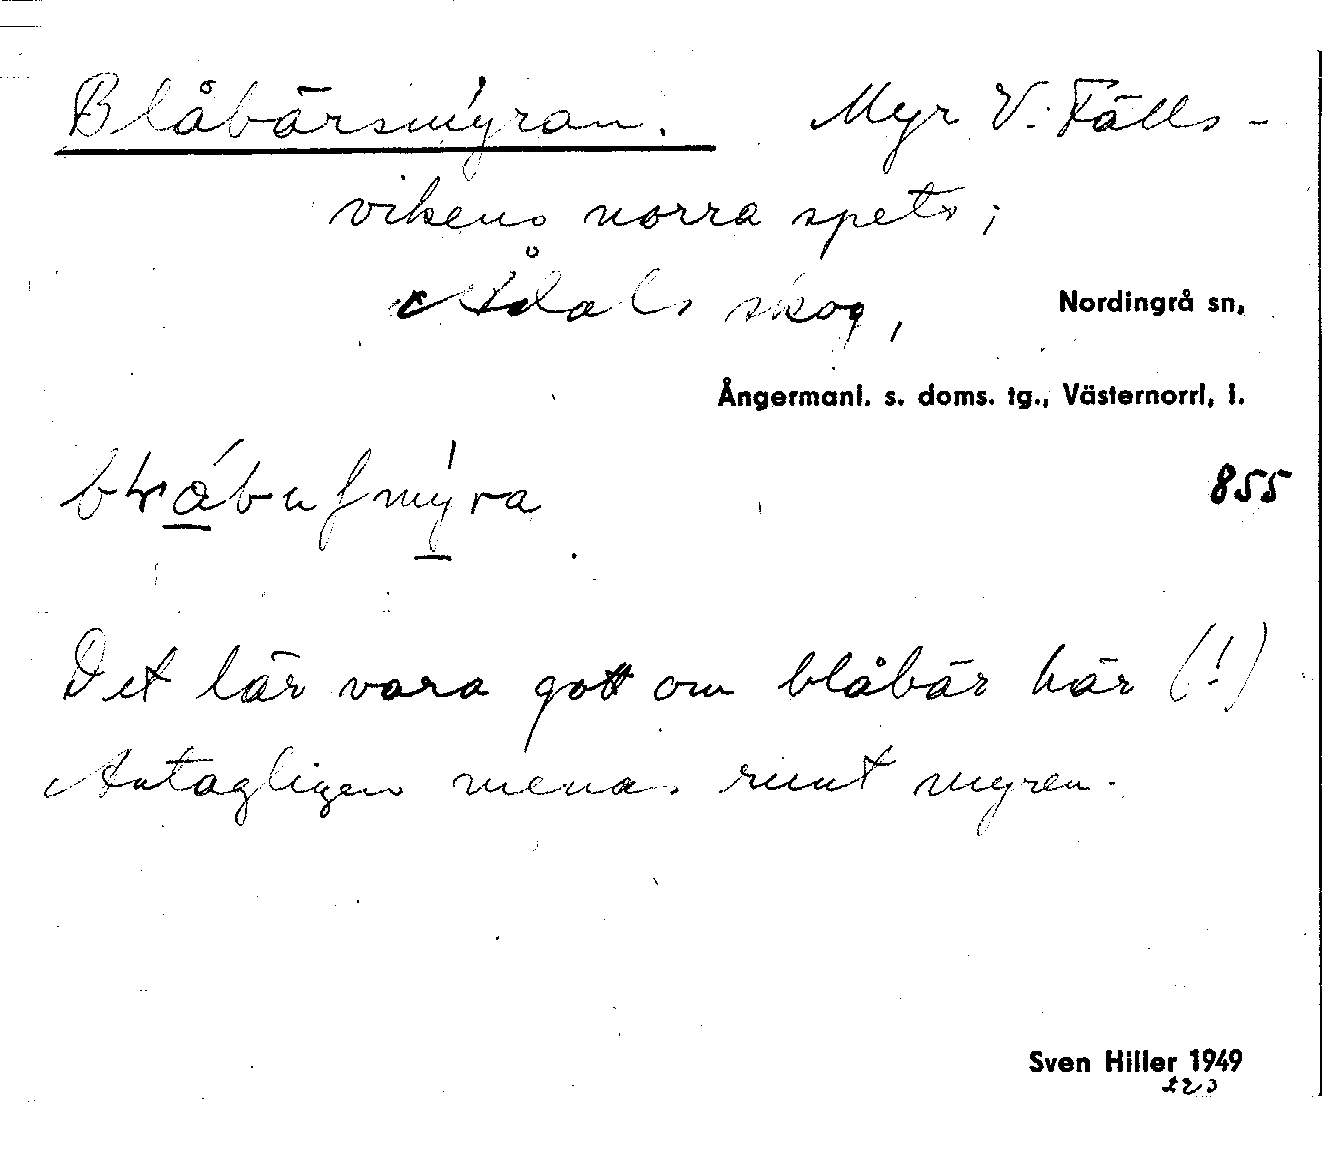 Blåbärsmýran. Myr V. Fälls-
vikens norra spets;
Ådals skog, Nordingrå sn,
Ångermanl. s. doms. tg., Västernorrl. l.
855
Det lär vara gott om blåbär här (!)
Antagligen menas runt myren.
Sven Hiller 1949